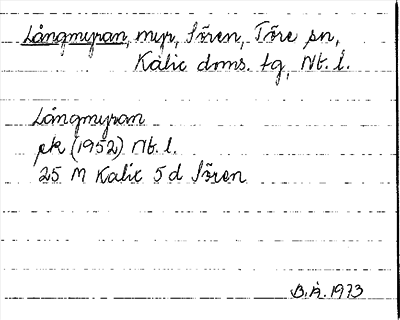 Långmyran, myr, Sören, Töre sn,
Kalix doms. tg, Nb. l.
Långmyran
ek (1952) Nb. l.
25 M Kalix 5 d Sören
B.Å. 1973